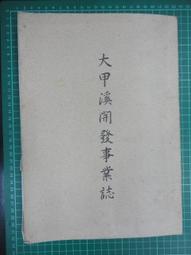 大甲溪開發事業誌